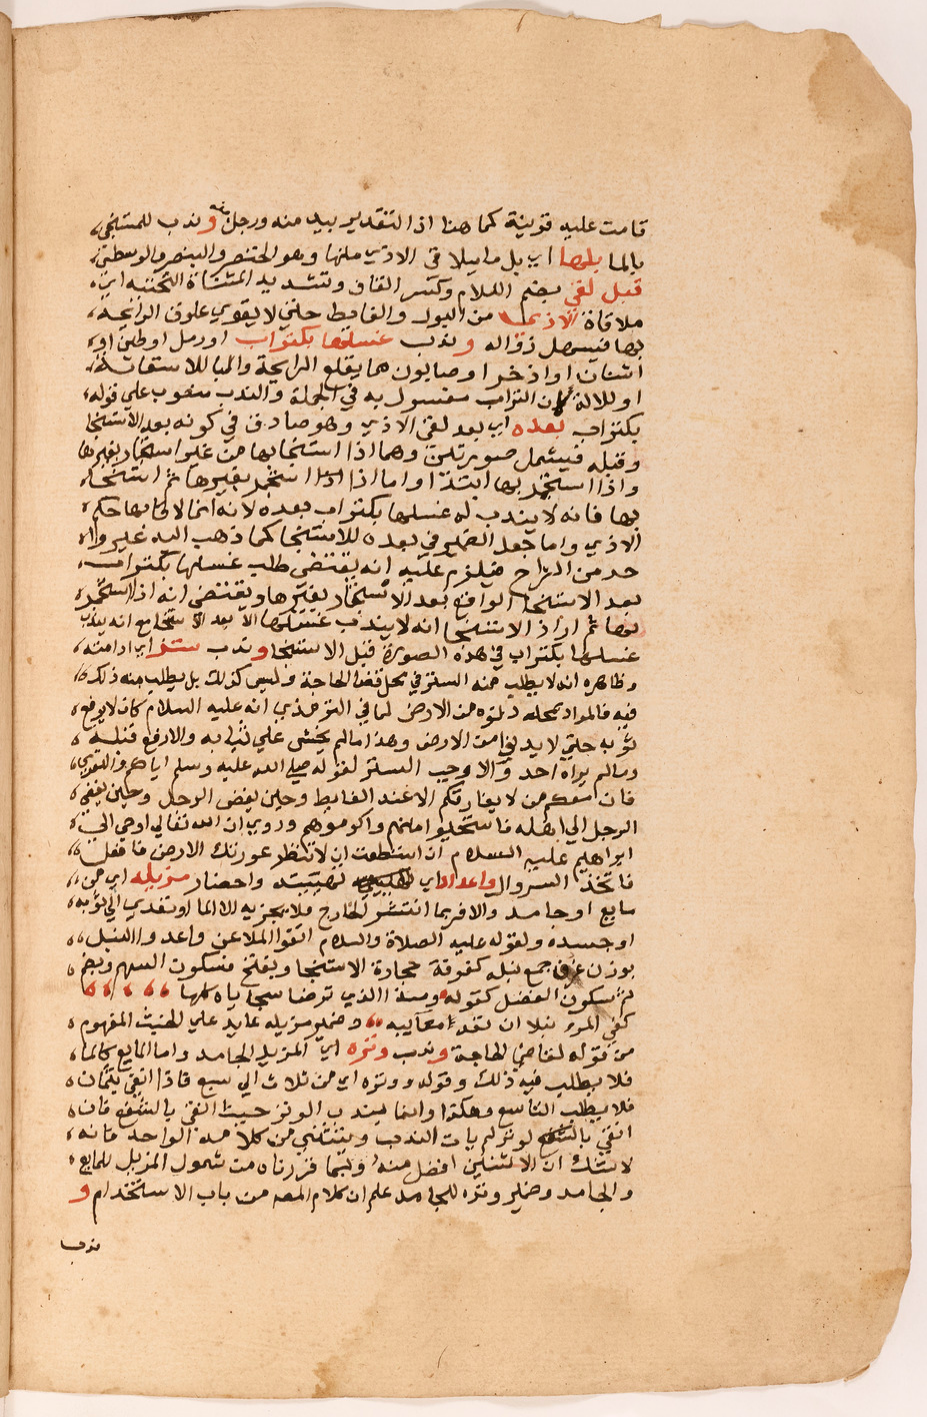 قامت عليه قرينة كما هنا اذ التقدير بيد منه ورجل منه وندب للمستنجي
بالما بلها اي بل ما يلاقي الاذي منها وهو الخنصر والبنصر والوسطي
قبل لقي بضم اللام وكسر القاف وتشديد المثناة التحتية اي
ملاقاة الاذي من البول والغايط حتي لا يقوي علوق الرايحة
بها فيسهل زواله وندب غسلها بكتراب او رمل او طين او
اشنان او اذخر او صابون مما يقلع الرايحة والبا للاستعانة
او للالة لان التراب مغسول به في الجملة والندب منصوب علي قوله
بكتراب بعده اي بعد لقي الاذي وهو صادق في كونه بعد الاستنجا
وقبله فيشمل صورتين وهما اذا استنجا بها من غير استجمار بغيرها
واذا استجمر بها ابتدا واما اذا استجمر بغيرها ثم استنجا
بها فانه لا يندب له غسلها بكتراب بعده لانه انما لاقي بها حكم
الاذي واما جعل الضمير في بعده للاستنجا كما ذهب اليه غير وا
حد من الشراح فيلزم عليه انه يقتضي طلب غسلها بكتراب
بعد الاستنجا الواقع بعد الاستجمار بغيرها ويقتضي انه اذا استجمر
بها ثم اراد الاستنجا انه لا يندب غسلها الا بعد الاستنجا مع انه يندب
غسلها بكتراب في هذه الصورة قبل الاستنجا وندب ستر اي ادامته
وظاهره انه لا يطلب منه الستر في محل قضا الحاجة وليس كذلك بل يطلب منه ذلك
فيه فالمراد بمحله دنوه من الارض لما في الترمذي انه عليه السلام كان لا يرفع
ثوبه حتي يدنو من الارض وهذا ما لم يخش علي ثيابه والا رفع قبله
وما لم يراه احد والا وجب الستر لقوله صلي الله عليه وسلم اياكم والتعري
فان معكم من لا يفارقكم الا عند الغايط وحين يفضي الرجل وحين يفضي
الرجل الي اهله فاستحيوا منهم واكرموهم وروي ان الله تعالي اوحي الي
ابراهيم عليه السلام ان استطعت ان لا تنظر عورتك الارض فافعل
فاتخذ السروال واعداد اي تهيئته واحضار مزيله اي من
مايع او جامد والا فربما انتشر الخارج فلا يجزيه الا الما او تعدي الي ثوبه
او جسده ولقوله عليه الصلاة والسلام اتقوا الملاعن واعدوا النبل
بوزن غرف جمع نبله كغرفة حجارة الاستنجا وبفتح فسكون السهم وبضم
ثم سكون الفضل كقوله ومنة الذي ترضا سجاياه كلها
كفي المرء نبلا ان تعد معاييبه وضمير مزيله عايد علي الخبث المفهوم
من قوله لقاضي الحاجة وندب وتره اي المزيل الجامد واما المايع كالما
فلا يطلب فيه ذلك وقوله ووتره اي من ثلاث الي سبع فاذا انقي بثمان
فلا يطلب التاسع وهكذا وانما يندب الوتر حيث انقي بالشفع فان
انقي بالوتر لم يات الندب ويستثني من كلامه الواحد فانه
لا شك ان الاثنين افضل منه وبما قررناه من شمول المزيل للمايع
والجامد وضمير وتره للجامد علم ان كلام المصه من باب الاستخدام و
ندب